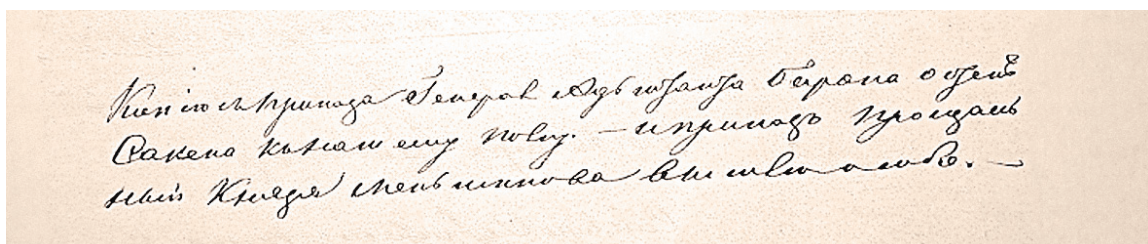 Копію съ приказа Генерал Адъютанта Барона Остенъ
Сакена къ нашему полку. — и приказъ прощаль
ный Князя Меньшикова вышлю особо. —